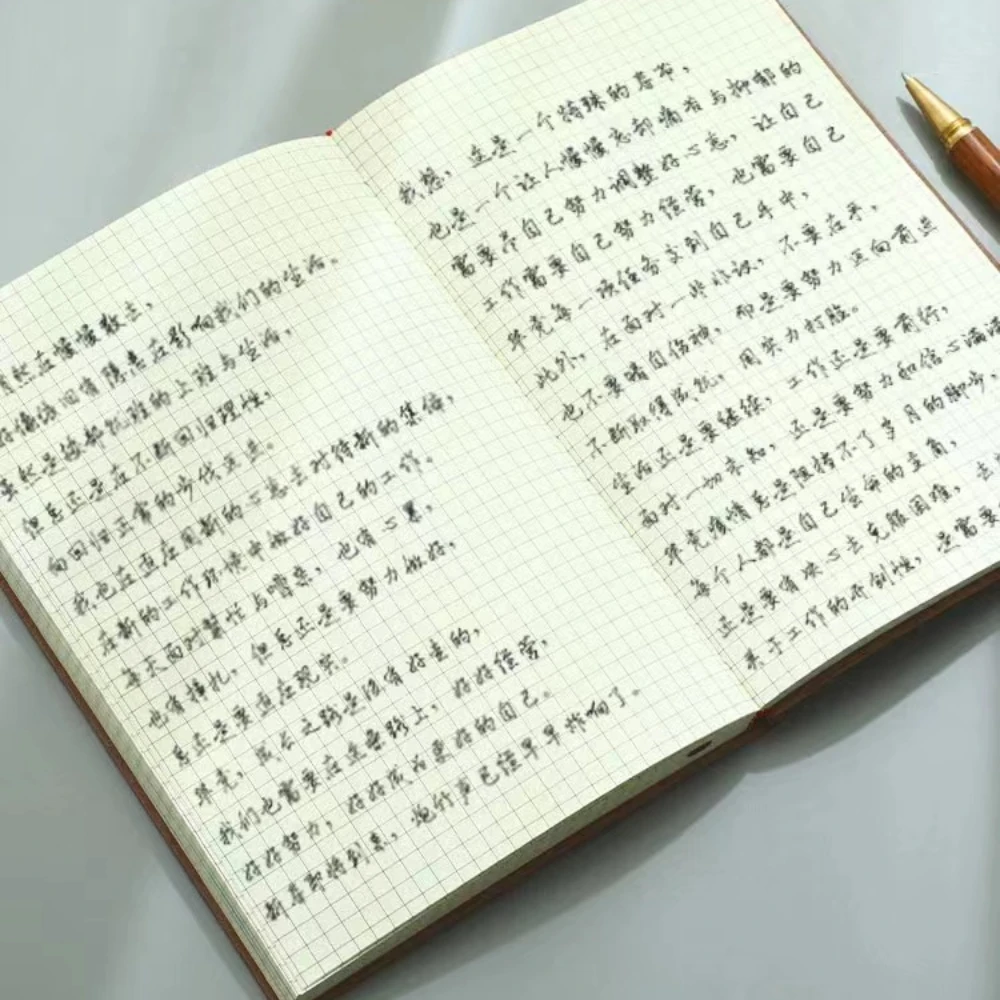 虽然在慢慢散去,
好像依旧有隐患在影响我们的生活。
虽然是被都扰乱的上班与生活,
但总还是在不断回归理性,
向回归正常的步伐迈进。
我也在适应用新的心态去对待新的集体,
在新的工作环境中做好自己的工作。
每天面对繁忙与喧嚣,也有心累,
也有挣扎,但总还是要努力做好,
总还是要适应现实。
毕竟,成长之路是很有好走的,
我们也需要在这条路上,好好经营,
好好努力,好好成为更好的自己。
新春即将到来,炮竹声已经早早炸响了。
我想,这是一个特殊的春节,
也是一个让人慢慢忘却痛苦与抑郁的
需要尽自己努力调整好心态,让自己
工作需要自己努力经营,也需要自己
毕竟每一次任务交到自己手中,
此外,在面对一些非议,不要在乎,
也不要暗自伤神,而是要努力正向前进
不断取得成就,用实力打脸。
生活还是要继续,工作还是要前行,
面对一切未知,还是要努力和信心满满
毕竟疫情总是阻挡不了岁月的脚步,
每个人都是自己生命的主角,
还是要有决心去克服困难,去
关于工作的开创性,是需要